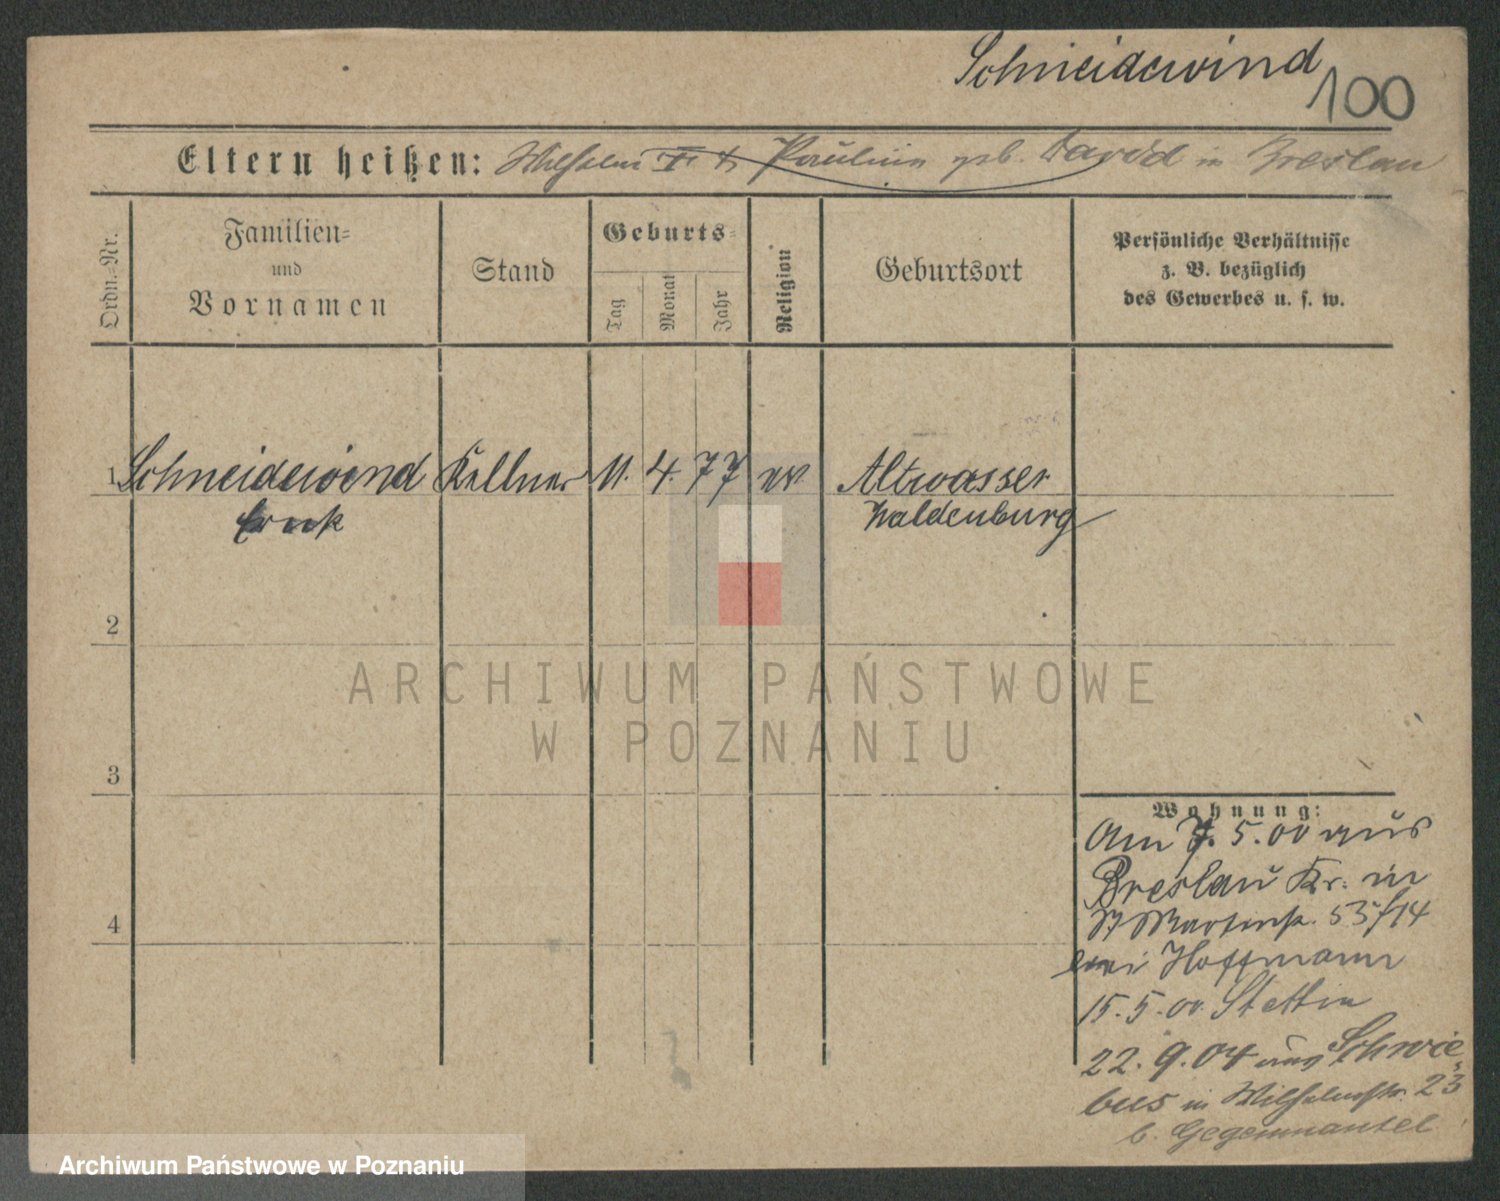 Schneidewind
100
Eltern heißen: Wilhelm † Pauline geb. David in Breslau
Ordn.-Nr.
Familien-
und
Vornamen
Stand
Geburts-
Tag
Monat
Jahr
Religion
Geburtsort
Persönliche Verhältnisse
z. B. bezüglich
des Gewerbes u. s. w.
1 Schneidewind Kellner 11. 4. 77 ev. Altwasser
Waldenburg
2
ARCHIWUM PAŃSTWOWE
W POZNANIU
3
4
Wohnung:
Am 7. 5. 00 aus
Breslau Kr. in
St Martinstr. 53/14
bei Hoffmann
15. 5. 00. Stettin
22. 9. 04 aus Schwie-
bus in Wilhelmstr. 23
b. Gegenmantel
Archiwum Państwowe w Poznaniu